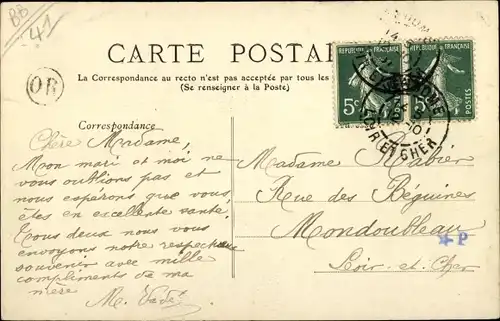 BB
41
CARTE POSTALE
La Correspondance au recto n'est pas acceptée par tous les
(Se renseigner à la Poste)
REPUBLIQUE FRANÇAISE
5c
POSTES
REPUBLIQUE FRANÇAISE
5c
POSTES
LOIR ET CHER
OR
Correspondance
Chère Madame,
Mon mari et moi ne
vous oublions pas et
nous espérons que vous
êtes en excellente santé.
Tous deux nous vous
envoyons notre respectueux
souvenir avec mille
compliments de ma
mère
M.
Madame Rabier
Rue des Béguines
Mondoubleau
Loir-et-Cher
P